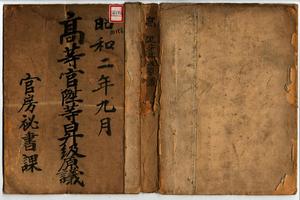 昭和二年九月
高等官陞等昇級原議
官房祕書課